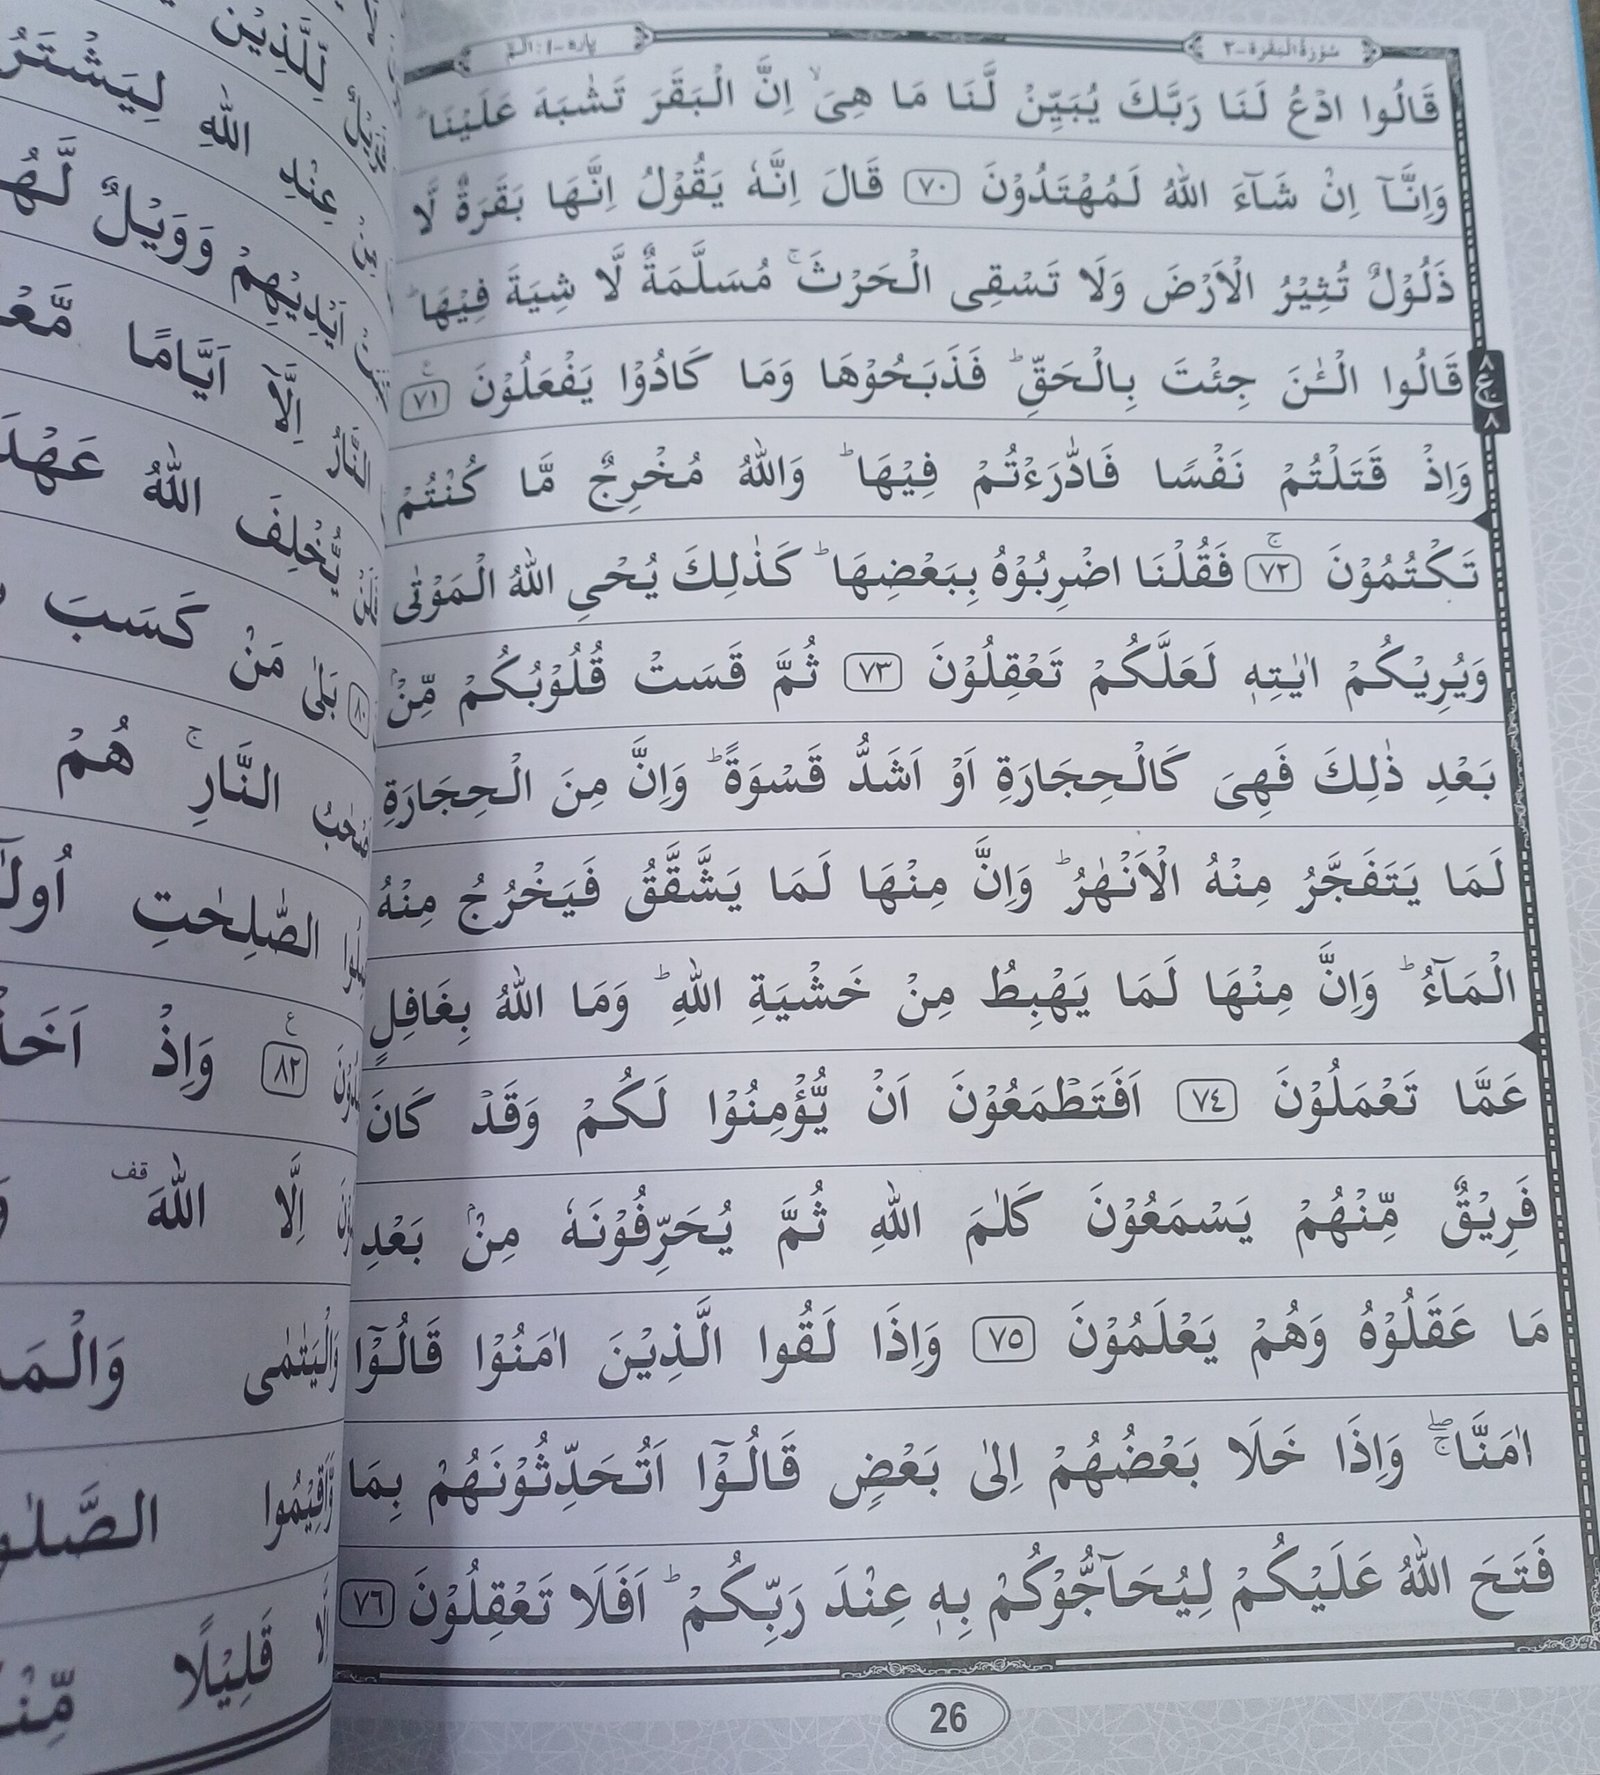 سُوْرَةُ الْبَقَرَة-٢
پاره-١: الٓمّ
قَالُوا ادْعُ لَنَا رَبَّكَ يُبَيِّنْ لَّنَا مَا هِىَ ۙ اِنَّ الْبَقَرَ تَشٰبَهَ عَلَيْنَا ؕ
وَاِنَّاۤ اِنْ شَآءَ اللّٰهُ لَمُهْتَدُوْنَ ٧٠ قَالَ اِنَّهٗ يَقُوْلُ اِنَّهَا بَقَرَةٌ لَّا
ذَلُوْلٌ تُثِيْرُ الْاَرْضَ وَلَا تَسْقِى الْحَرْثَ ۚ مُسَلَّمَةٌ لَّا شِيَةَ فِيْهَا ؕ
قَالُوا الْـٰٔنَ جِئْتَ بِالْحَقِّ ؕ فَذَبَحُوْهَا وَمَا كَادُوْا يَفْعَلُوْنَ ٧١
وَاِذْ قَتَلْتُمْ نَفْسًا فَادّٰرَءْتُمْ فِيْهَا ؕ وَاللّٰهُ مُخْرِجٌ مَّا كُنْتُمْ
تَكْتُمُوْنَ ۚ ٧٢ فَقُلْنَا اضْرِبُوْهُ بِبَعْضِهَا ؕ كَذٰلِكَ يُحْىِ اللّٰهُ الْمَوْتٰى
وَيُرِيْكُمْ اٰيٰتِهٖ لَعَلَّكُمْ تَعْقِلُوْنَ ٧٣ ثُمَّ قَسَتْ قُلُوْبُكُمْ مِّنْۢ
بَعْدِ ذٰلِكَ فَهِىَ كَالْحِجَارَةِ اَوْ اَشَدُّ قَسْوَةً ؕ وَاِنَّ مِنَ الْحِجَارَةِ
لَمَا يَتَفَجَّرُ مِنْهُ الْاَنْهٰرُ ؕ وَاِنَّ مِنْهَا لَمَا يَشَّقَّقُ فَيَخْرُجُ مِنْهُ
الْمَآءُ ؕ وَاِنَّ مِنْهَا لَمَا يَهْبِطُ مِنْ خَشْيَةِ اللّٰهِ ؕ وَمَا اللّٰهُ بِغَافِلٍ
عَمَّا تَعْمَلُوْنَ ٧٤ اَفَتَطْمَعُوْنَ اَنْ يُّؤْمِنُوْا لَكُمْ وَقَدْ كَانَ
فَرِيْقٌ مِّنْهُمْ يَسْمَعُوْنَ كَلٰمَ اللّٰهِ ثُمَّ يُحَرِّفُوْنَهٗ مِنْۢ بَعْدِ
مَا عَقَلُوْهُ وَهُمْ يَعْلَمُوْنَ ٧٥ وَاِذَا لَقُوا الَّذِيْنَ اٰمَنُوْا قَالُوْۤا
اٰمَنَّا ۖۚ وَاِذَا خَلَا بَعْضُهُمْ اِلٰى بَعْضٍ قَالُوْۤا اَتُحَدِّثُوْنَهُمْ بِمَا
فَتَحَ اللّٰهُ عَلَيْكُمْ لِيُحَآجُّوْكُمْ بِهٖ عِنْدَ رَبِّكُمْ ؕ اَفَلَا تَعْقِلُوْنَ ٧٦
26
لِّلَّذِيْنَ
عِنْدِ اللّٰهِ لِيَشْتَرُ
اَيْدِيْهِمْ وَوَيْلٌ لَّهُ
النَّارُ اِلَّاۤ اَيَّامًا مَّعْ
يُّخْلِفَ اللّٰهُ عَهْدَ
٨٠ بَلٰى مَنْ كَسَبَ
النَّارِ ۚ هُمْ
الصّٰلِحٰتِ
٨٢ وَاِذْ
اِلَّا اللّٰهَ قف
وَالْيَتٰمٰى
وَّاَقِيْمُوا
قَلِيْلًا